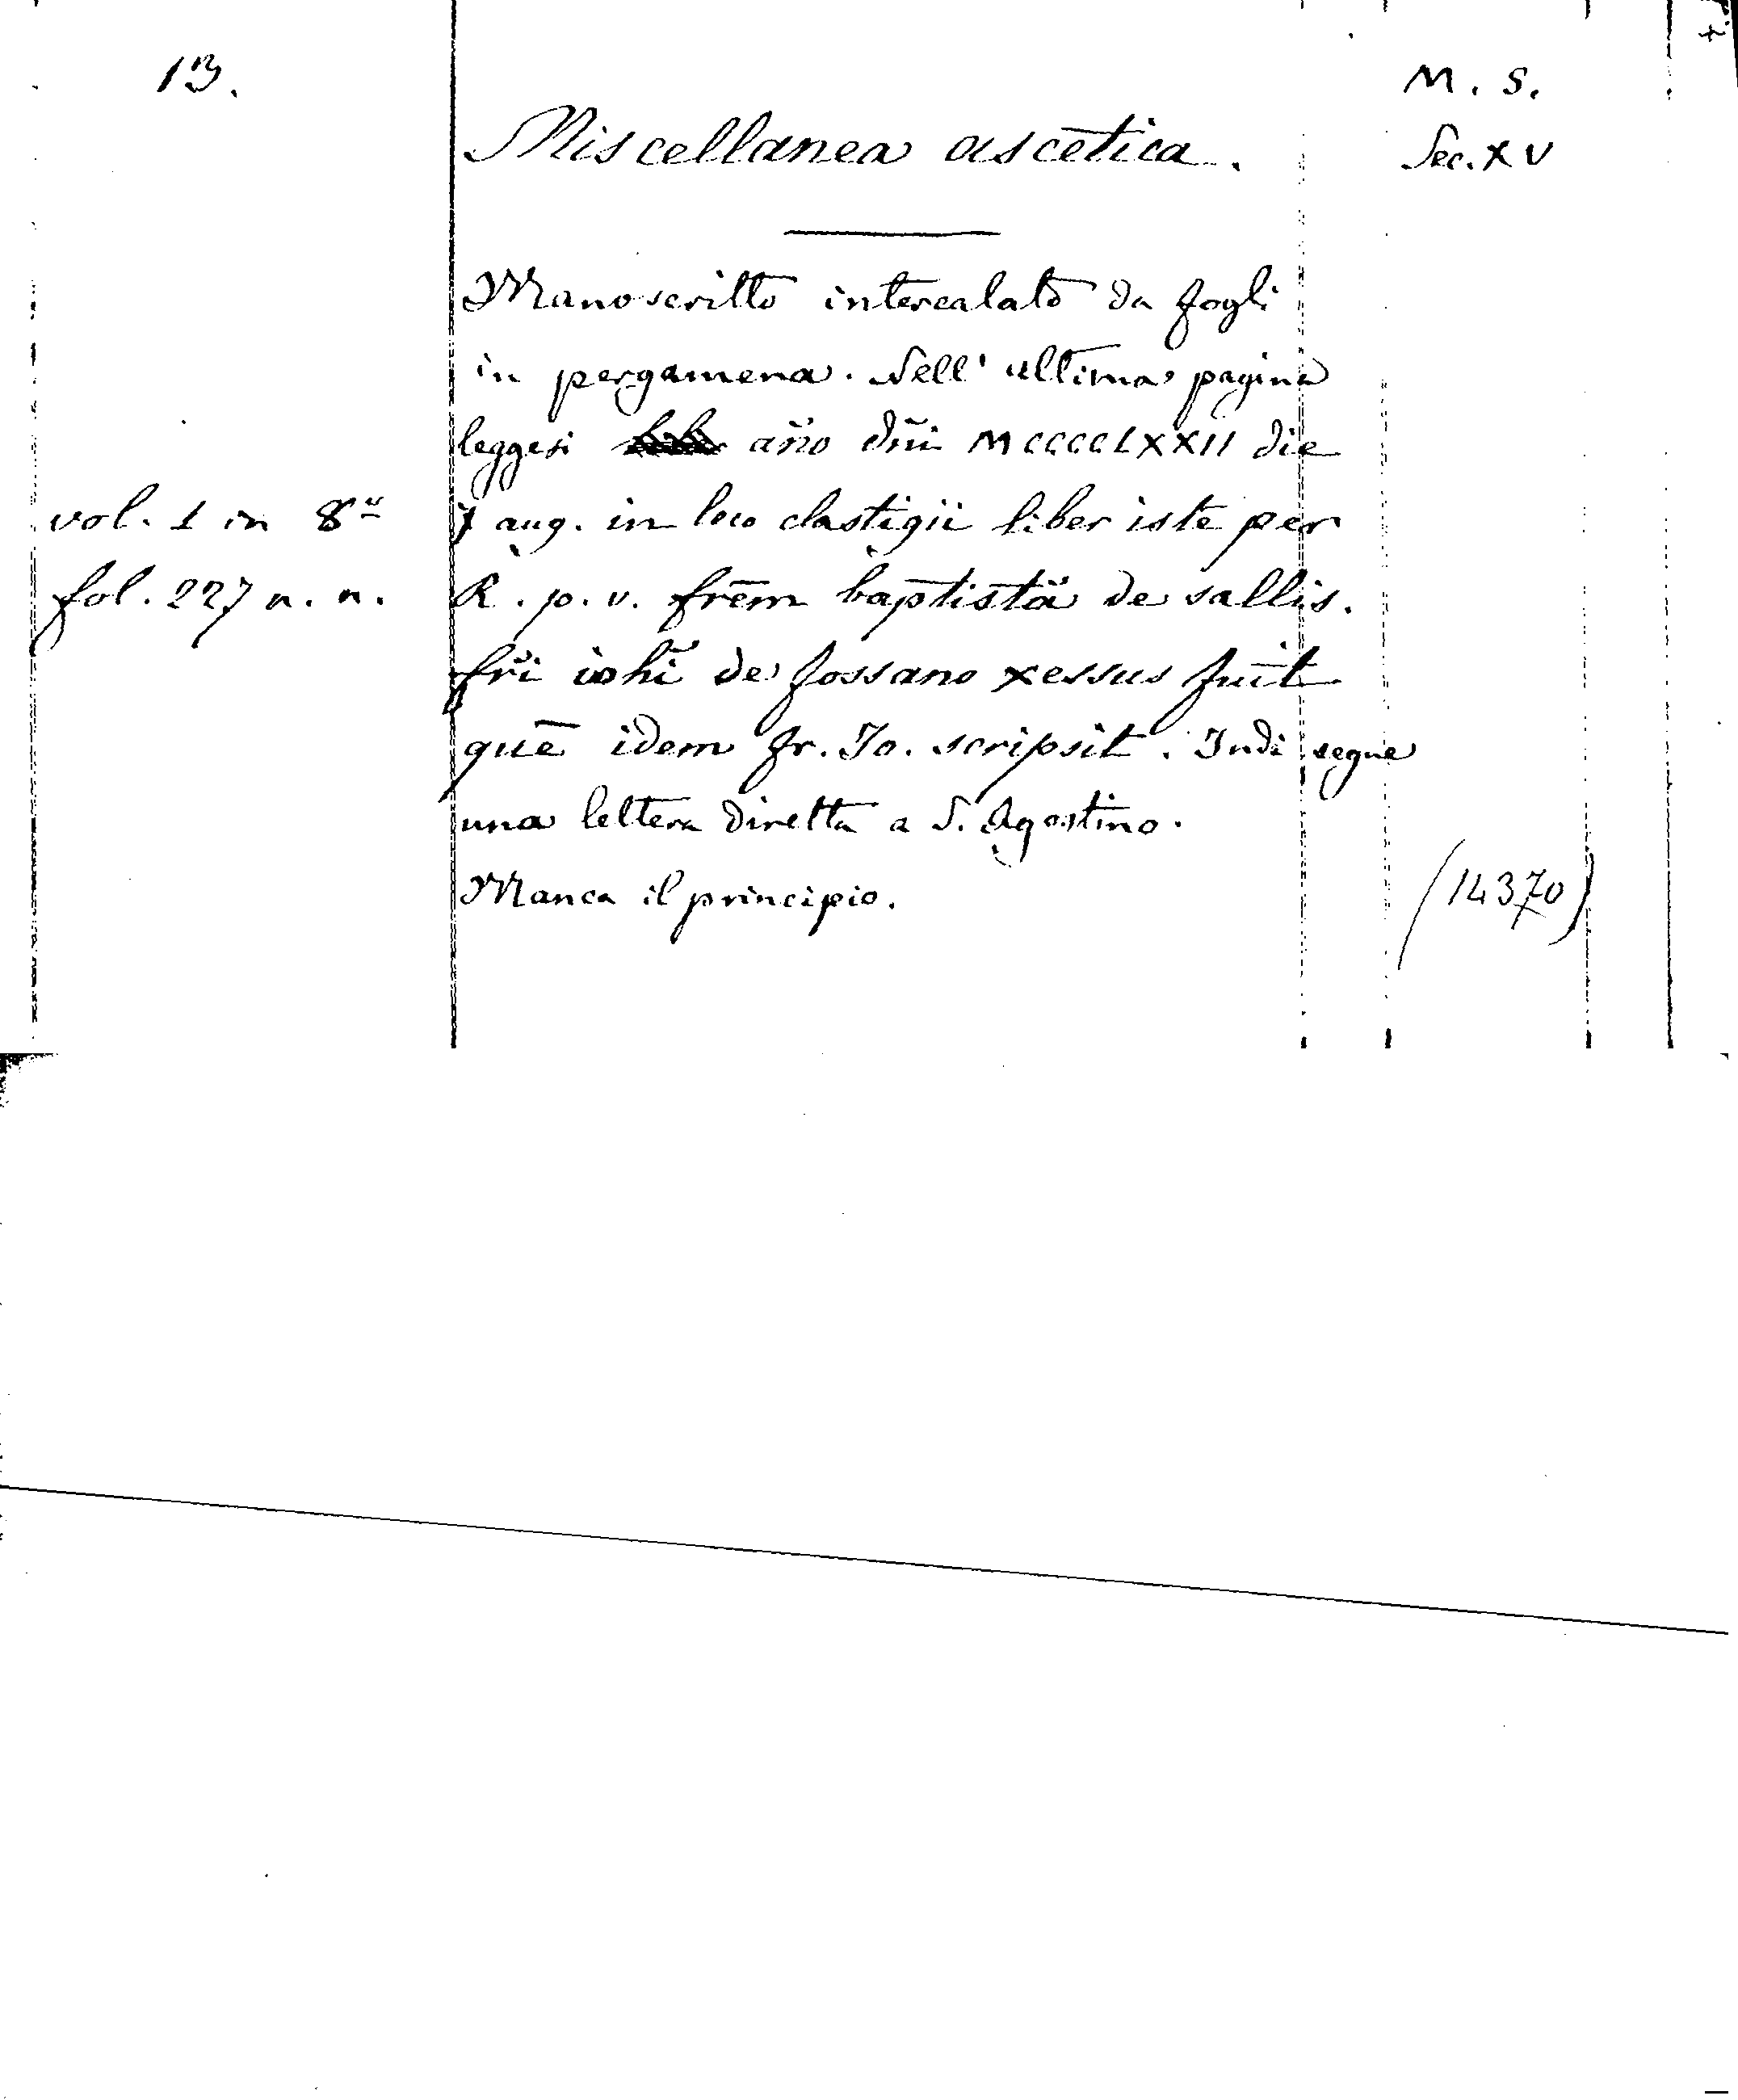 13.
M. S.
Miscellanea ascetica.
Sec. XV
Manoscritto intercalato da fogli
in pergamena. Nell' ultima pagina
leggesi año dñi MCCCCLXXII die
vol. 1 in 8º
7 aug. in loco clastigii liber iste per
fol. 227 n. n.
R. p. v. frēm baptistā de sallis.
fr̃i iohĩ de fossano xessus fuit
quē idem fr. Io. scripsit. Indi segue
una lettera diretta a S. Agostino.
Manca il principio.
(14370)